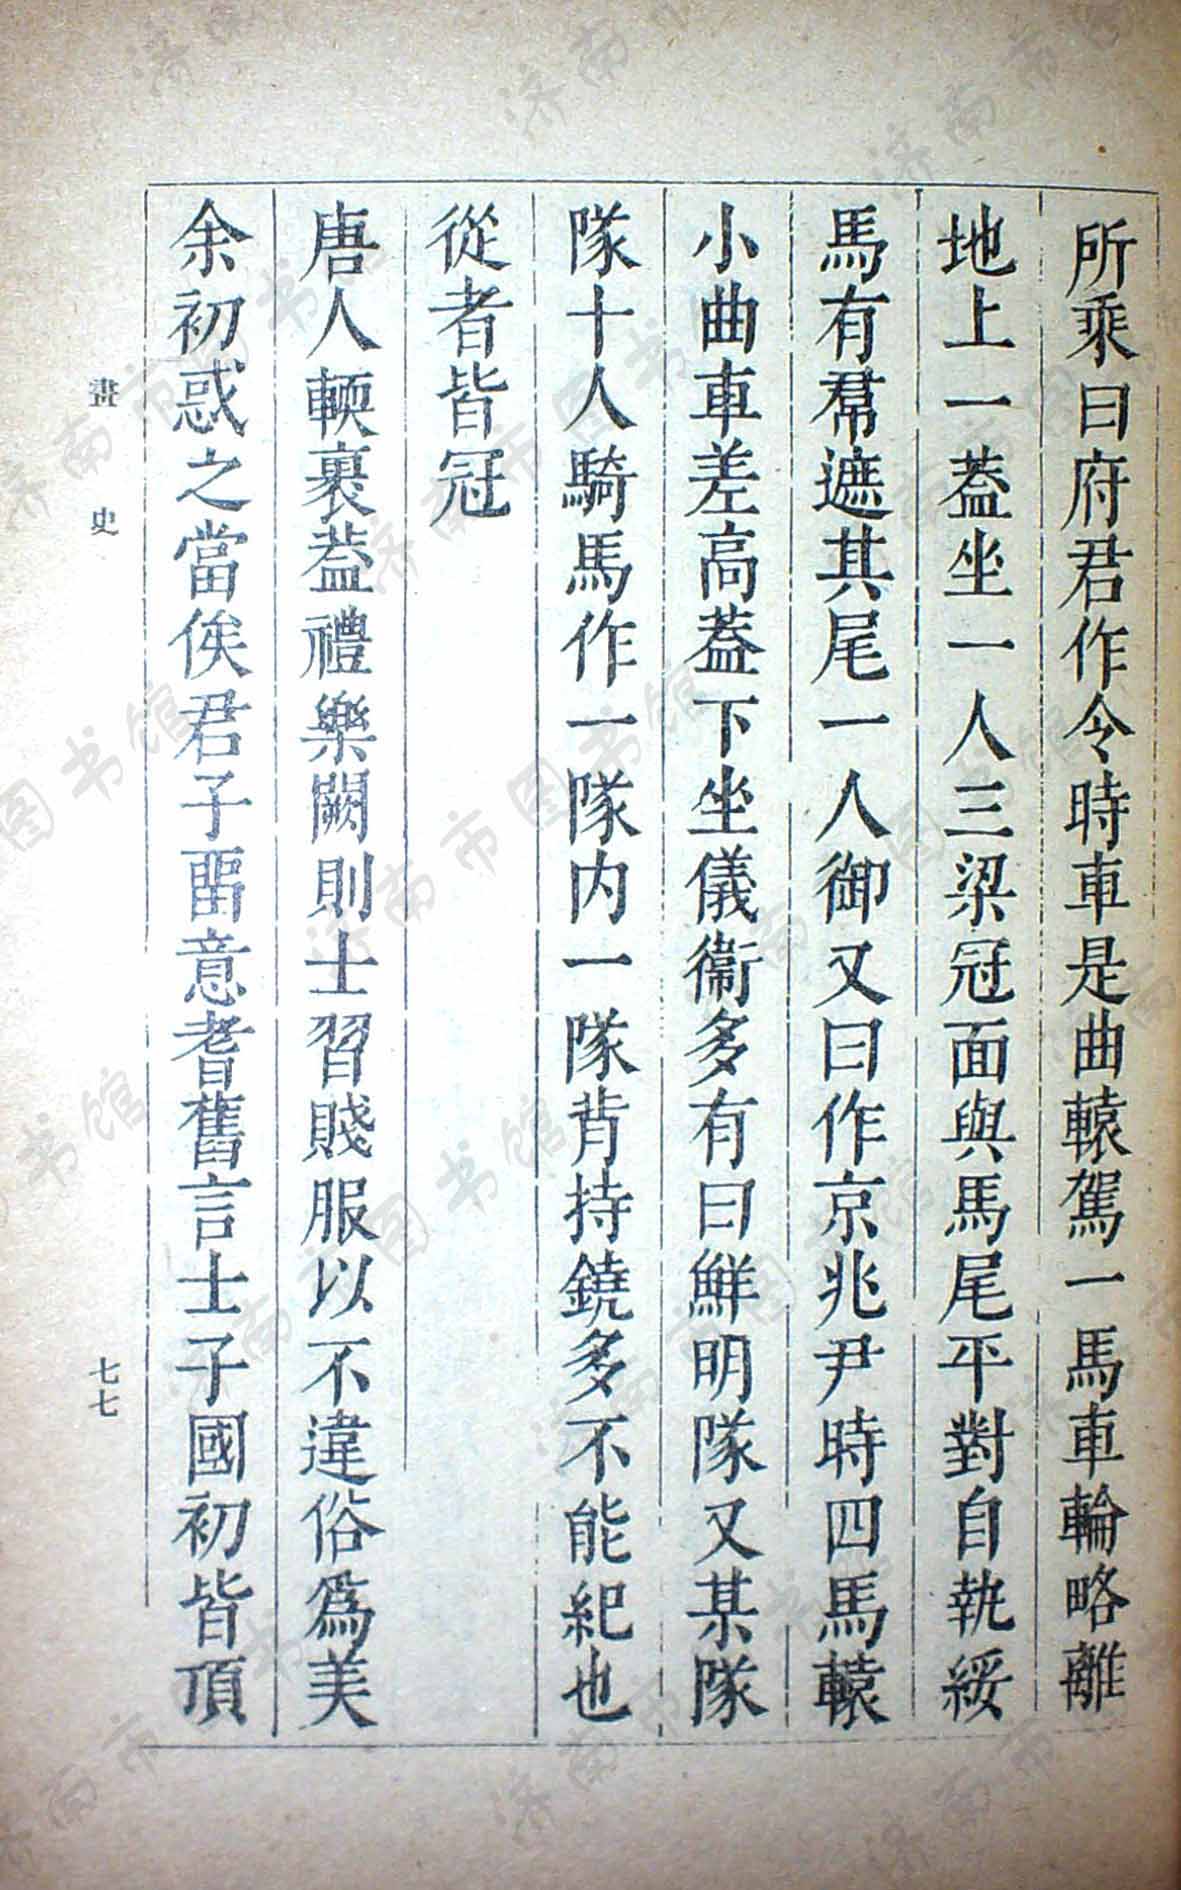 所乘曰府君作令時車是曲轅駕一馬車輪略離
地上一葢坐一人三梁冠面與馬尾平對自執綏
馬有帬遮其尾一人御又曰作京兆尹時四馬轅
小曲車差高葢下坐儀衞多有曰鮮明隊又某隊
隊十人騎馬作一隊内一隊背持鐃多不能紀也
從者皆冠
唐人輭裹葢禮樂闕則士習賤服以不違俗爲美
余初惑之當俟君子畱意耆舊言士子國初皆頂
畫史
七七
济南市图书馆